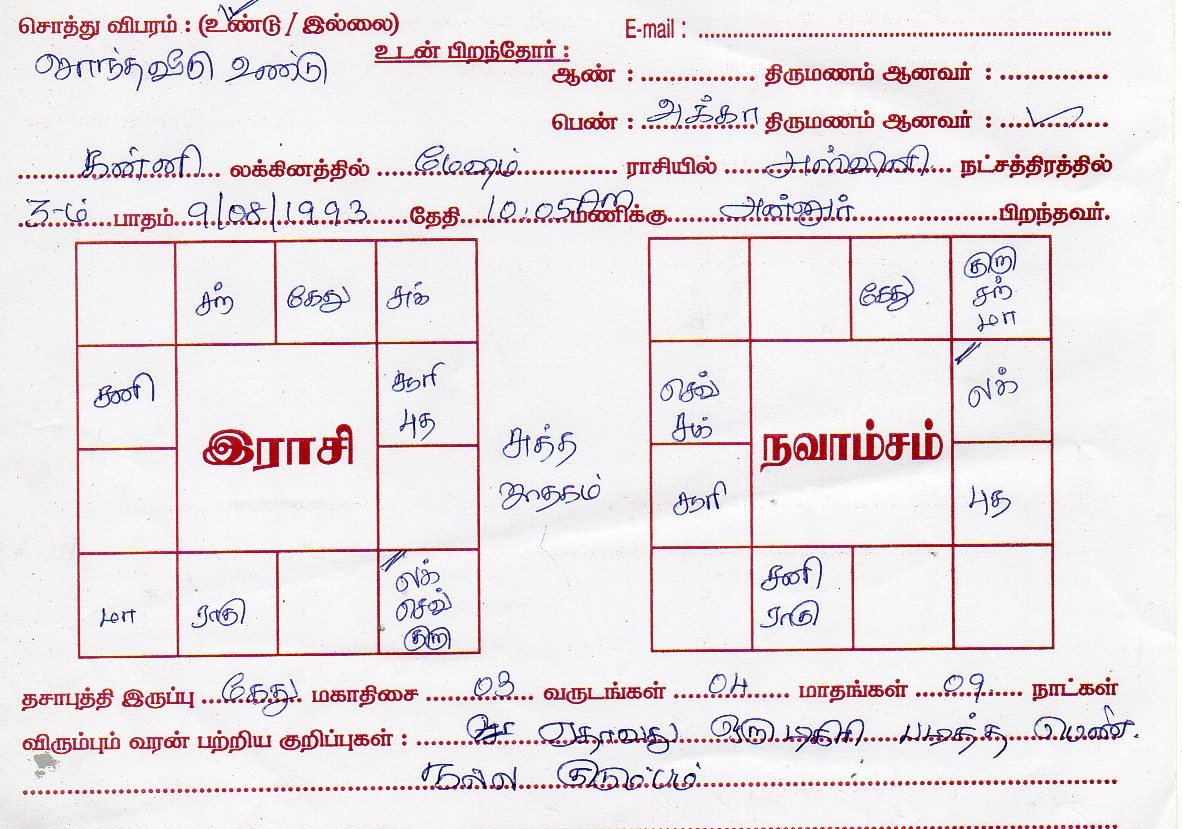 சொத்து விபரம் : (உண்டு / இல்லை)
E-mail :
சொந்த வீடு உண்டு
உடன் பிறந்தோர் :
ஆண் : திருமணம் ஆனவர் :
பெண் : அக்கா திருமணம் ஆனவர் : ✓
கன்னி லக்கினத்தில் மேஷம் ராசியில் அஸ்வினி நட்சத்திரத்தில்
3-ம் பாதம் 9/08/1993 தேதி 10:05 மணிக்கு அன்னூர் பிறந்தவர்.
சந் கேது சுக்
சனி சூரி புத
இராசி
மா ராகு லக் செவ் குரு
சுத்த
ஜாதகம்
கேது குரு சந் மா
செவ் சுக் லக்
நவாம்சம்
சூரி புத
சனி ராகு
தசாபுத்தி இருப்பு கேது மகாதிசை 03 வருடங்கள் 04 மாதங்கள் 09 நாட்கள்
விரும்பும் வரன் பற்றிய குறிப்புகள் : ஏதாவது ஒரு டிகிரி படித்த பெண்.
நல்ல குடும்பம்